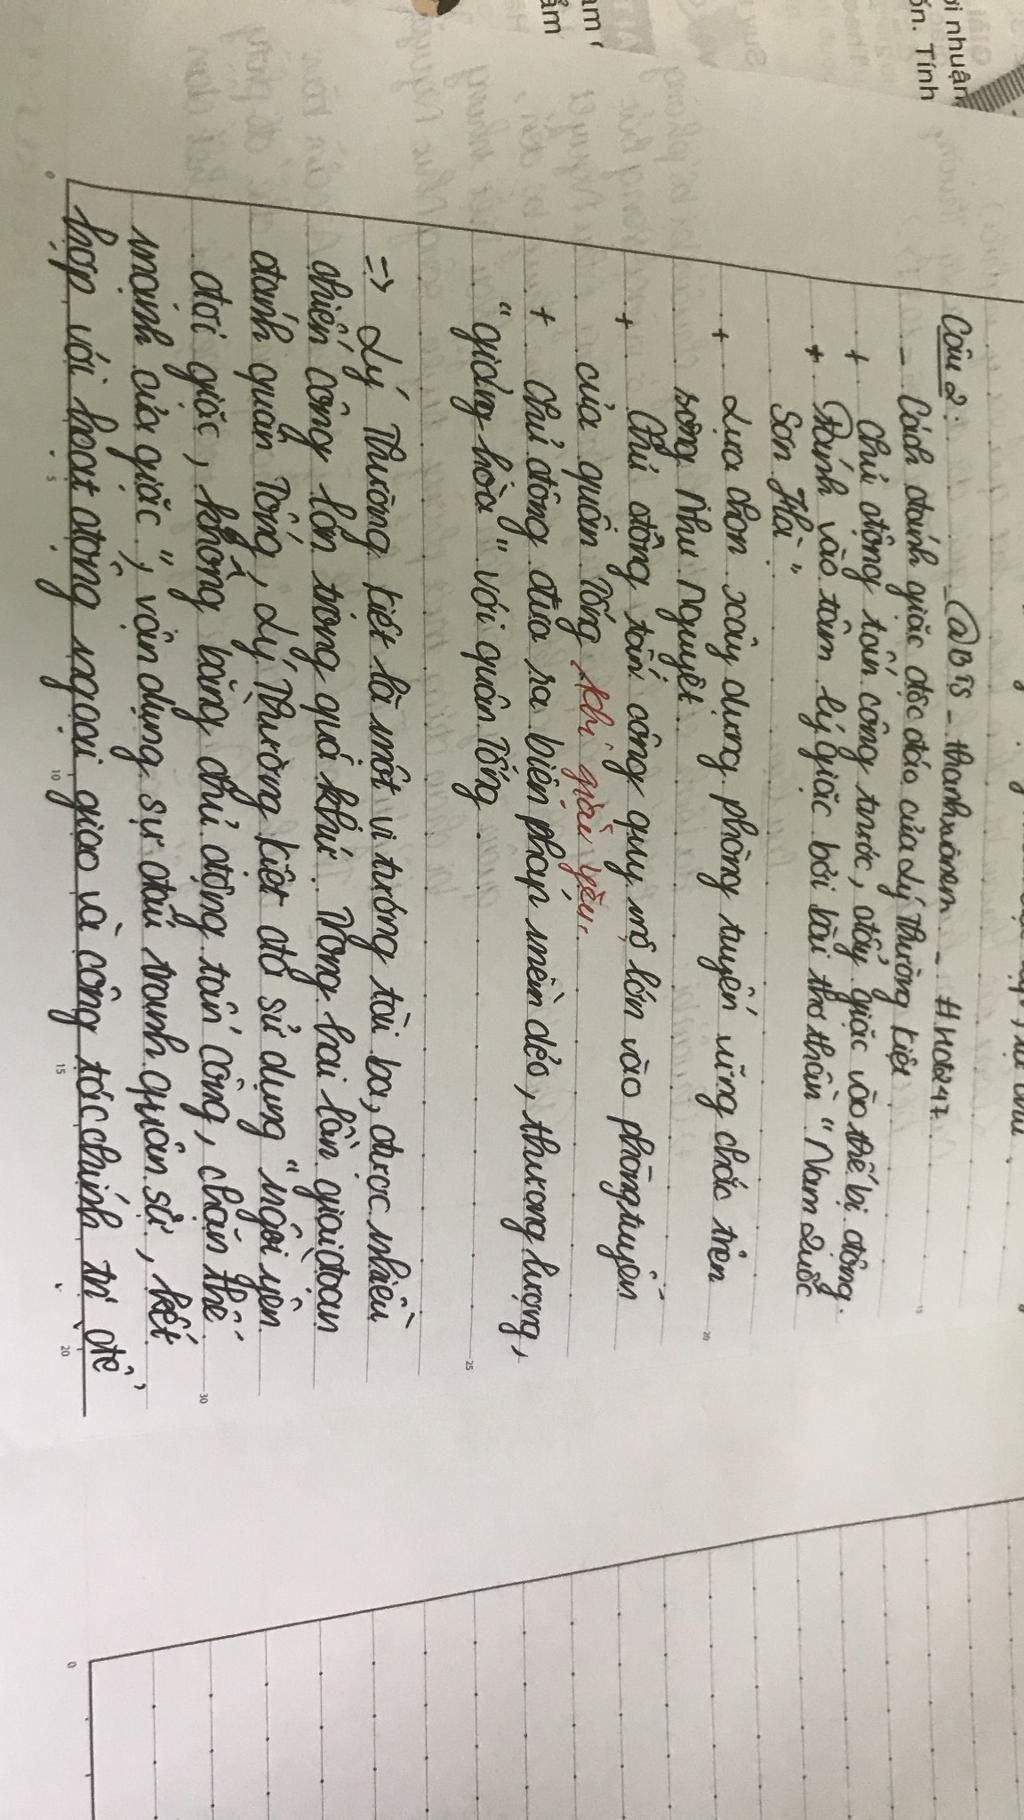 ợi nhuận
ốn. Tính
Câu 2: @BTS_thanhxuanem_Hoc247
- Cách đánh giặc độc đáo của Lý Thường Kiệt
+ Chủ động tấn công trước, đẩy giặc vào thế bị động.
+ Đánh vào tâm lý giặc bởi bài thơ thần "Nam Quốc
Sơn Hà"
+ Lựa chọn xây dựng phòng tuyến vững chắc trên
sông Như Nguyệt.
+ Chủ động tấn công quy mô lớn vào phòng tuyến
của quân Tống khi giặc yếu.
+ Chủ động đưa ra biện pháp mềm dẻo, thương lượng,
"giảng hòa" với quân Tống.
=> Lý Thường Kiệt là một vị tướng tài ba, được nhiều
chiến công lớn trong quá khứ. Trong hai lần giai đoạn
đánh quân Tống, Lý Thường Kiệt đã sử dụng "ngồi yên
đợi giặc, không bằng chủ động tấn công, chặn thế
mạnh của giặc", vận dụng sự đấu tranh quân sự, kết
hợp với hoạt động ngoại giao và công tác chính trị để